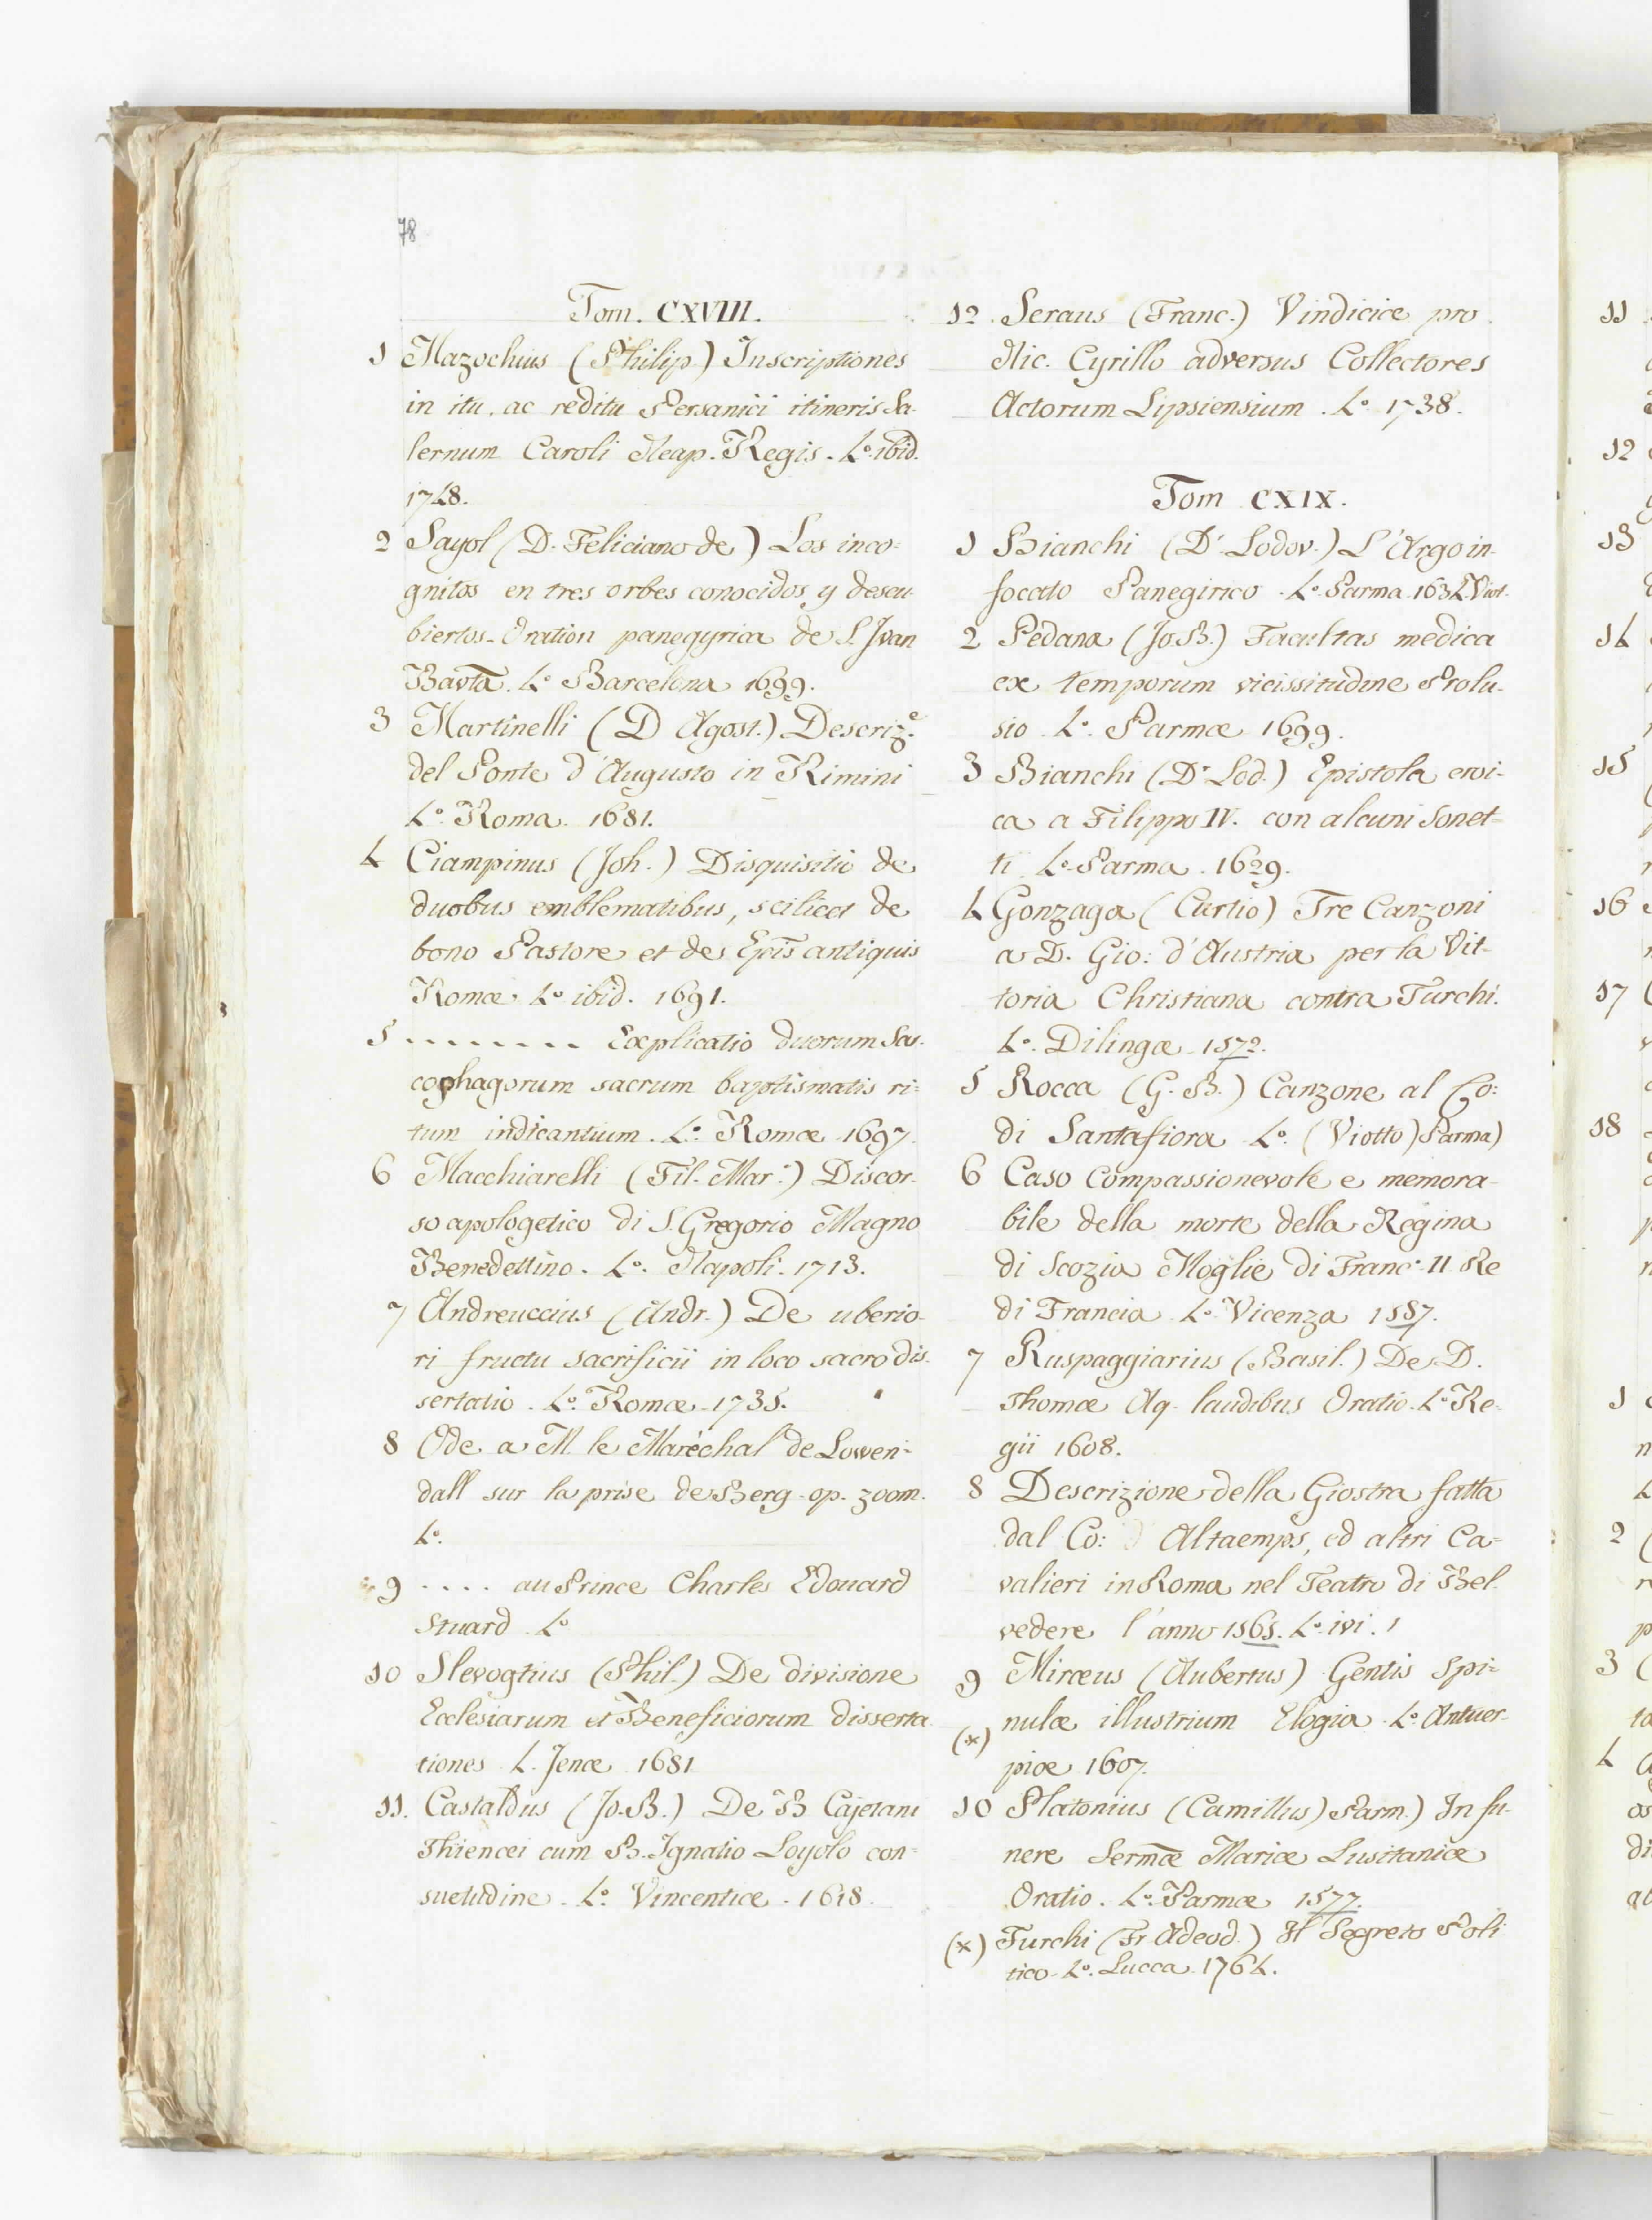 78
Tom. CXVIII.
1 Mazochius (Philip) Inscriptiones
in itu, ac reditu Persanici itineris Sa-
lernum Caroli Neap. Regis. 4.º ibid.
1748.
2 Sayol (D. Feliciano de) Los inco-
gnitos en tres orbes conocidos y descu-
biertos. Oration panegyrica de S. Jvan
Bavta. 4.º Barcelona 1699.
3 Martinelli (D Agost.) Descriz.e
del Ponte d'Augusto in Rimini
4.º Roma. 1681.
4 Ciampinus (Joh.) Disquisitio de
duobus emblematibus, scilicet de
bono Pastore et de Epis antiquis
Romæ. 4.º ibid. 1691.
5 ........ Explicatio duorum Sar-
cophagorum sacrum baptismatis ri-
tum indicantium. 4.º Romæ 1697.
6 Macchiarelli (Fil. Mar.ª) Discor-
so apologetico di S. Gregorio Magno
Benedettino. 4.º Napoli. 1713.
7 Andreuccius (Andr.) De uberio-
ri fructu sacrificii in loco sacro dis-
sertatio. 4.º Romæ 1735.
8 Ode a M. le Maréchal de Lowen-
dall sur la prise de Berg-op-zoom.
4.º
9 .... au Prince Charles Edouard
Stuard 4.º
10 Slevogtius (Phil.) De divisione
Ecclesiarum et Beneficiorum disserta-
tiones 4. Jenæ 1681
11. Castaldus (Jo. B.) De B Cajetani
Thiencei cum B. Ignatio Loyolo con-
suetudine. 4.º Vincentiæ. 1618.
12 Seraus (Franc.) Vindiciæ pro
Nic. Cyrillo adversus Collectores
Actorum Lipsiensium. 4.º 1738.
Tom CXIX.
1 Bianchi (D. Lodov.) L'Argo in-
focato Panegirico. 4.º Parma 1634. Viot.
2 Pedana (Jo. B.) Facultas medica
ex temporum vicissitudine Prolu-
sio 4.º Parmæ 1699.
3 Bianchi (D. Lod.) Epistola eroi-
ca a Filippo IV. con alcuni Sonet-
ti 4.º Parma 1629.
4 Gonzaga (Curtio) Tre Canzoni
a D. Gio: d'Austria per la Vit-
toria Christiana contra Turchi.
4.º Dilingæ 1572.
5 Rocca (G. B.) Canzone al Co:
di Santafiora 4.º (Viotto) Parma)
6 Caso compassionevole e memora-
bile della morte della Regina
di Scozia Moglie di Franc. II Re
di Francia 4.º Vicenza 1587.
7 Ruspaggiarius (Basil.) De D.
Thomæ Aq. laudibus Oratio. 4.º Re-
gii 1608.
8 Descrizione della Giostra fatta
dal Co: Altaemps, ed altri Ca-
valieri in Roma nel Teatro di Bel-
vedere l'anno 1565. 4.º ivi. 1
9 Miræus (Aubertus) Gentis Spi-
(*) nulæ illustrium Elogia 4.º Antuer-
piæ 1607.
10 Platonius (Camillus) Parm.) In fu-
nere Sermæ Mariæ Lusitaniæ
Oratio. 4.º Parmæ 1577.
(*) Turchi (Fr. Adeod.) Il Segreto Poli
tico. 4.º Lucca 1764.
11
12
13
14
15
16
17
18
1
2
3
4